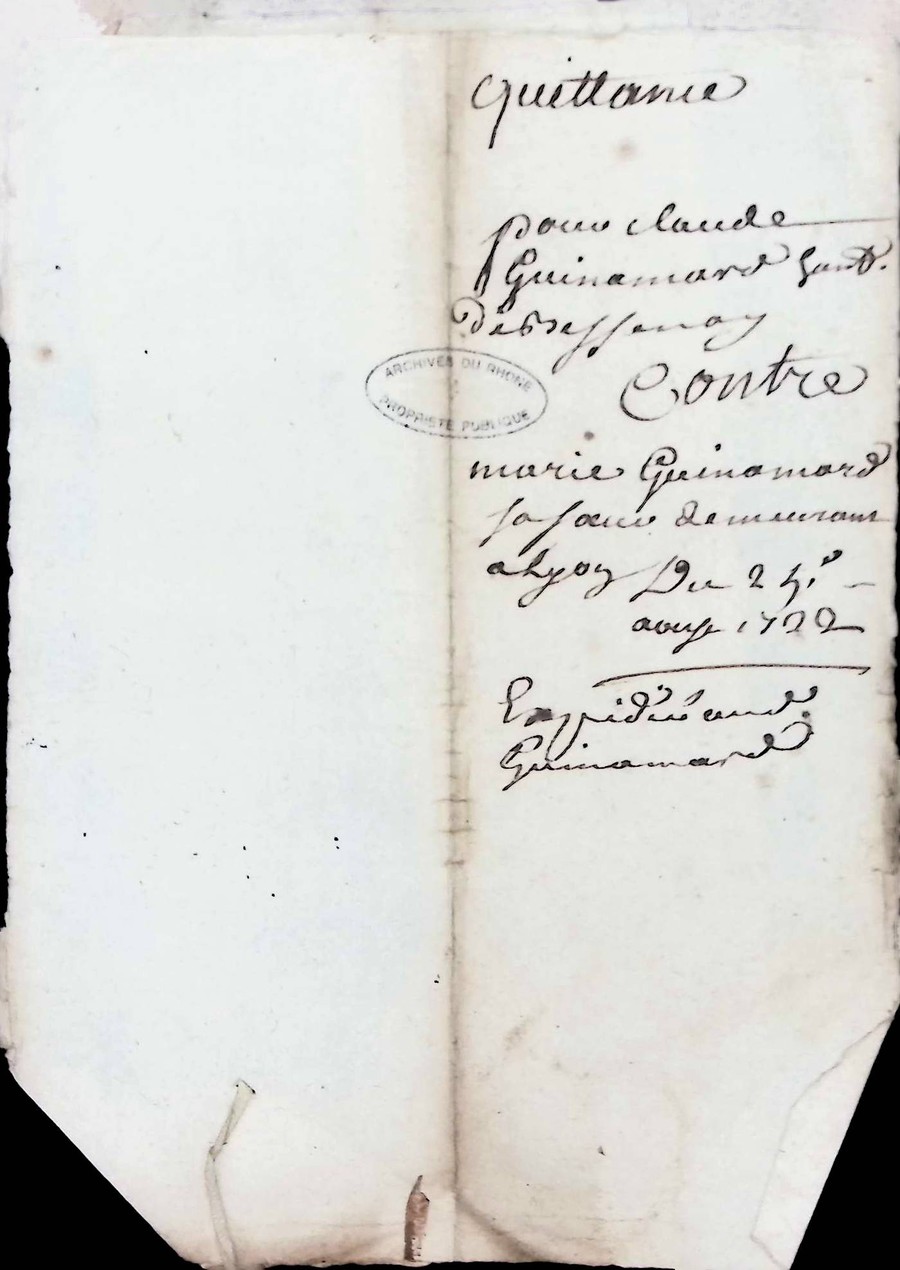 quittance
pour claude
Guinamard habt.
de Bessenay
Contre
ARCHIVES DU RHONE
PROPRIETE PUBLIQUE
marie Guinamard
sa sœur demeurant
a Lyon Du
aoust 1722
Expédié aud.
Guinamard